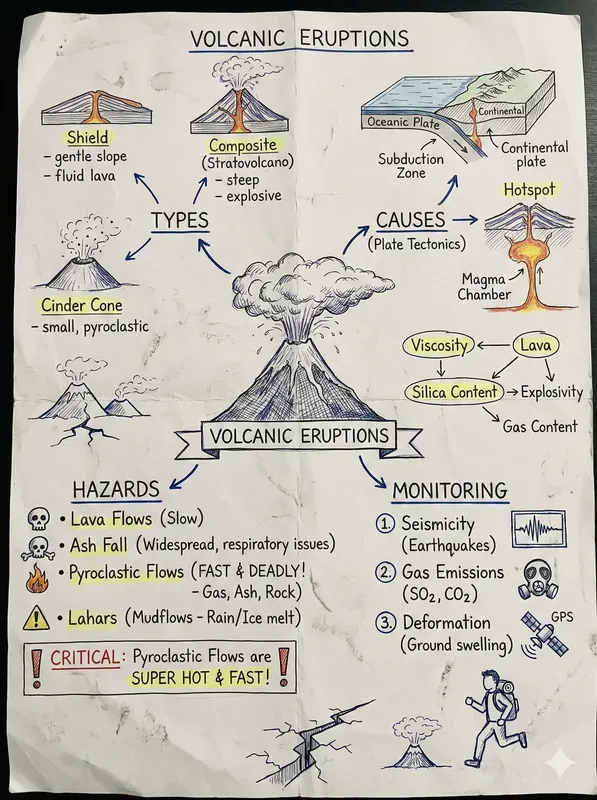 VOLCANIC ERUPTIONS
Shield
- gentle slope
- fluid lava
Composite
(Stratovolcano)
- steep
- explosive
TYPES
Cinder Cone
- small, pyroclastic
Oceanic Plate
Continental
Subduction
Zone
Continental
plate
CAUSES
(Plate Tectonics)
Hotspot
Magma
Chamber
Viscosity
Lava
Silica Content
Explosivity
Gas Content
VOLCANIC ERUPTIONS
HAZARDS
• Lava Flows (Slow)
• Ash Fall (Widespread, respiratory issues)
• Pyroclastic Flows (FAST & DEADLY!
- Gas, Ash, Rock)
• Lahars (Mudflows - Rain/Ice melt)
! CRITICAL: Pyroclastic Flows are !
SUPER HOT & FAST!
MONITORING
1. Seismicity
(Earthquakes)
2. Gas Emissions
(SO₂, CO₂)
3. Deformation
(Ground swelling)
GPS